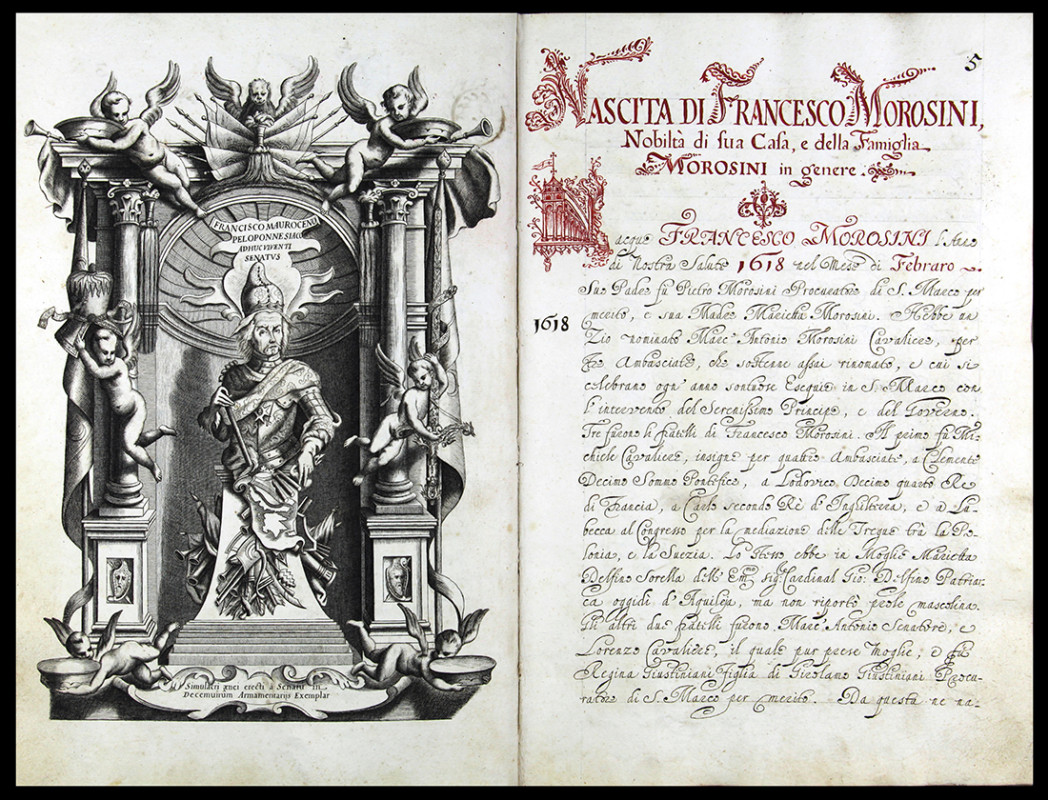 FRANCISCO MAUROCENO
PELOPONNESIACO
ADHUC VIVENTI
SENATVS
Simulacri ænei erecti à Senatu in
Decemuirûm Armamentarijs Exemplar
5
NASCITA DI FRANCESCO MOROSINI,
Nobiltà di sua Casa, e della Famiglia
MOROSINI in genere.
Nacque FRANCESCO MOROSINI l'Anno
di Nostra Salute 1618 nel Mese di Febraro
Suo Padre fu Pietro Morosini Procurator di S. Marco per
1618
merito, e sua Madre Marietta Morosini. Hebbe un
Zio nominato Marc' Antonio Morosini Cavalier, per
tre Ambasciate, che sostenne assai rinomato, e cui si
celebrano ogn' anno sontuose Esequie in S. Marco con
l'intervento del Serenissimo Principe, e del Governo.
Tre furono li fratelli di Francesco Morosini. Il primo fù Mi-
chiele Cavaliere, insigne per quattro Ambasciate, a Clemente
Decimo Sommo Pontefice, a Lodovico Decimo quarto Re
di Francia, a Carlo secondo Rè d'Inghilterra, e a Lu-
becca al Congresso per la mediazione delle Tregue trà la Po-
lonia, e la Suezia. Lo stesso ebbe in Moglie Marietta
Delfino Sorella dell' Em.mo sig.r Cardinal Gio: Delfino Patriar-
ca oggidi d'Aquileja, ma non riportò prole mascolina.
Gli altri due fratelli furono, Marc' Antonio Senatore, e
Lorenzo Cavaliere, il quale pur prese Moglie, e fù
Regina Giustiniani figlia di Girolamo Giustiniani Procu-
ratore di S. Marco per merito. Da questa ne na-